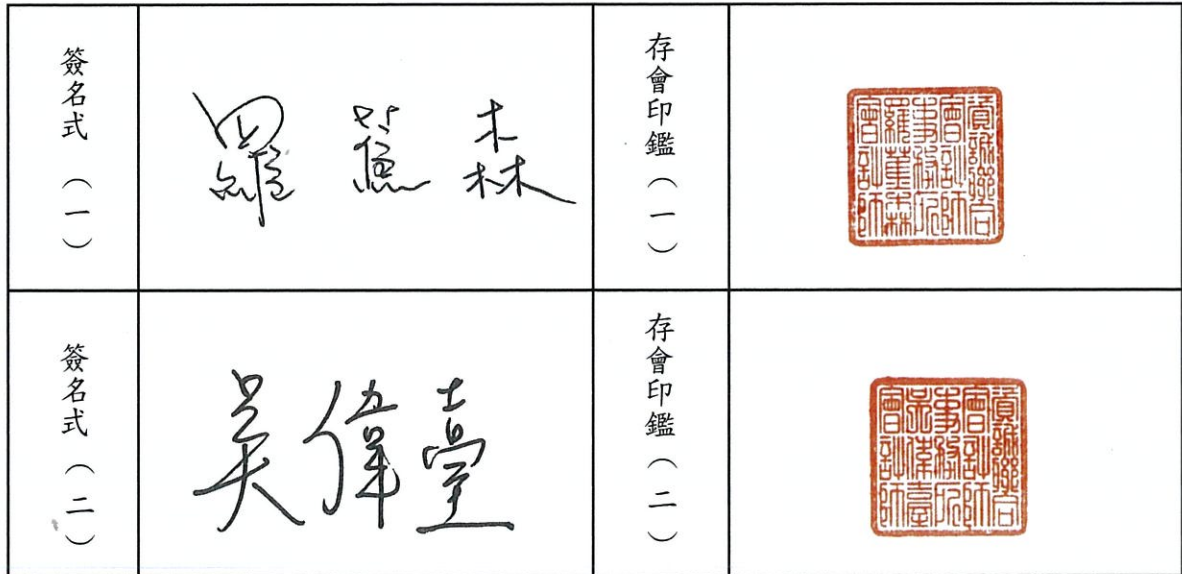 簽名式（一）
羅蕉森
存會印鑑（一）
資誠聯合
會計師
事務所
羅蕉森
會計師
簽名式（二）
吳偉臺
存會印鑑（二）
資誠聯合
會計師
事務所
吳偉臺
會計師